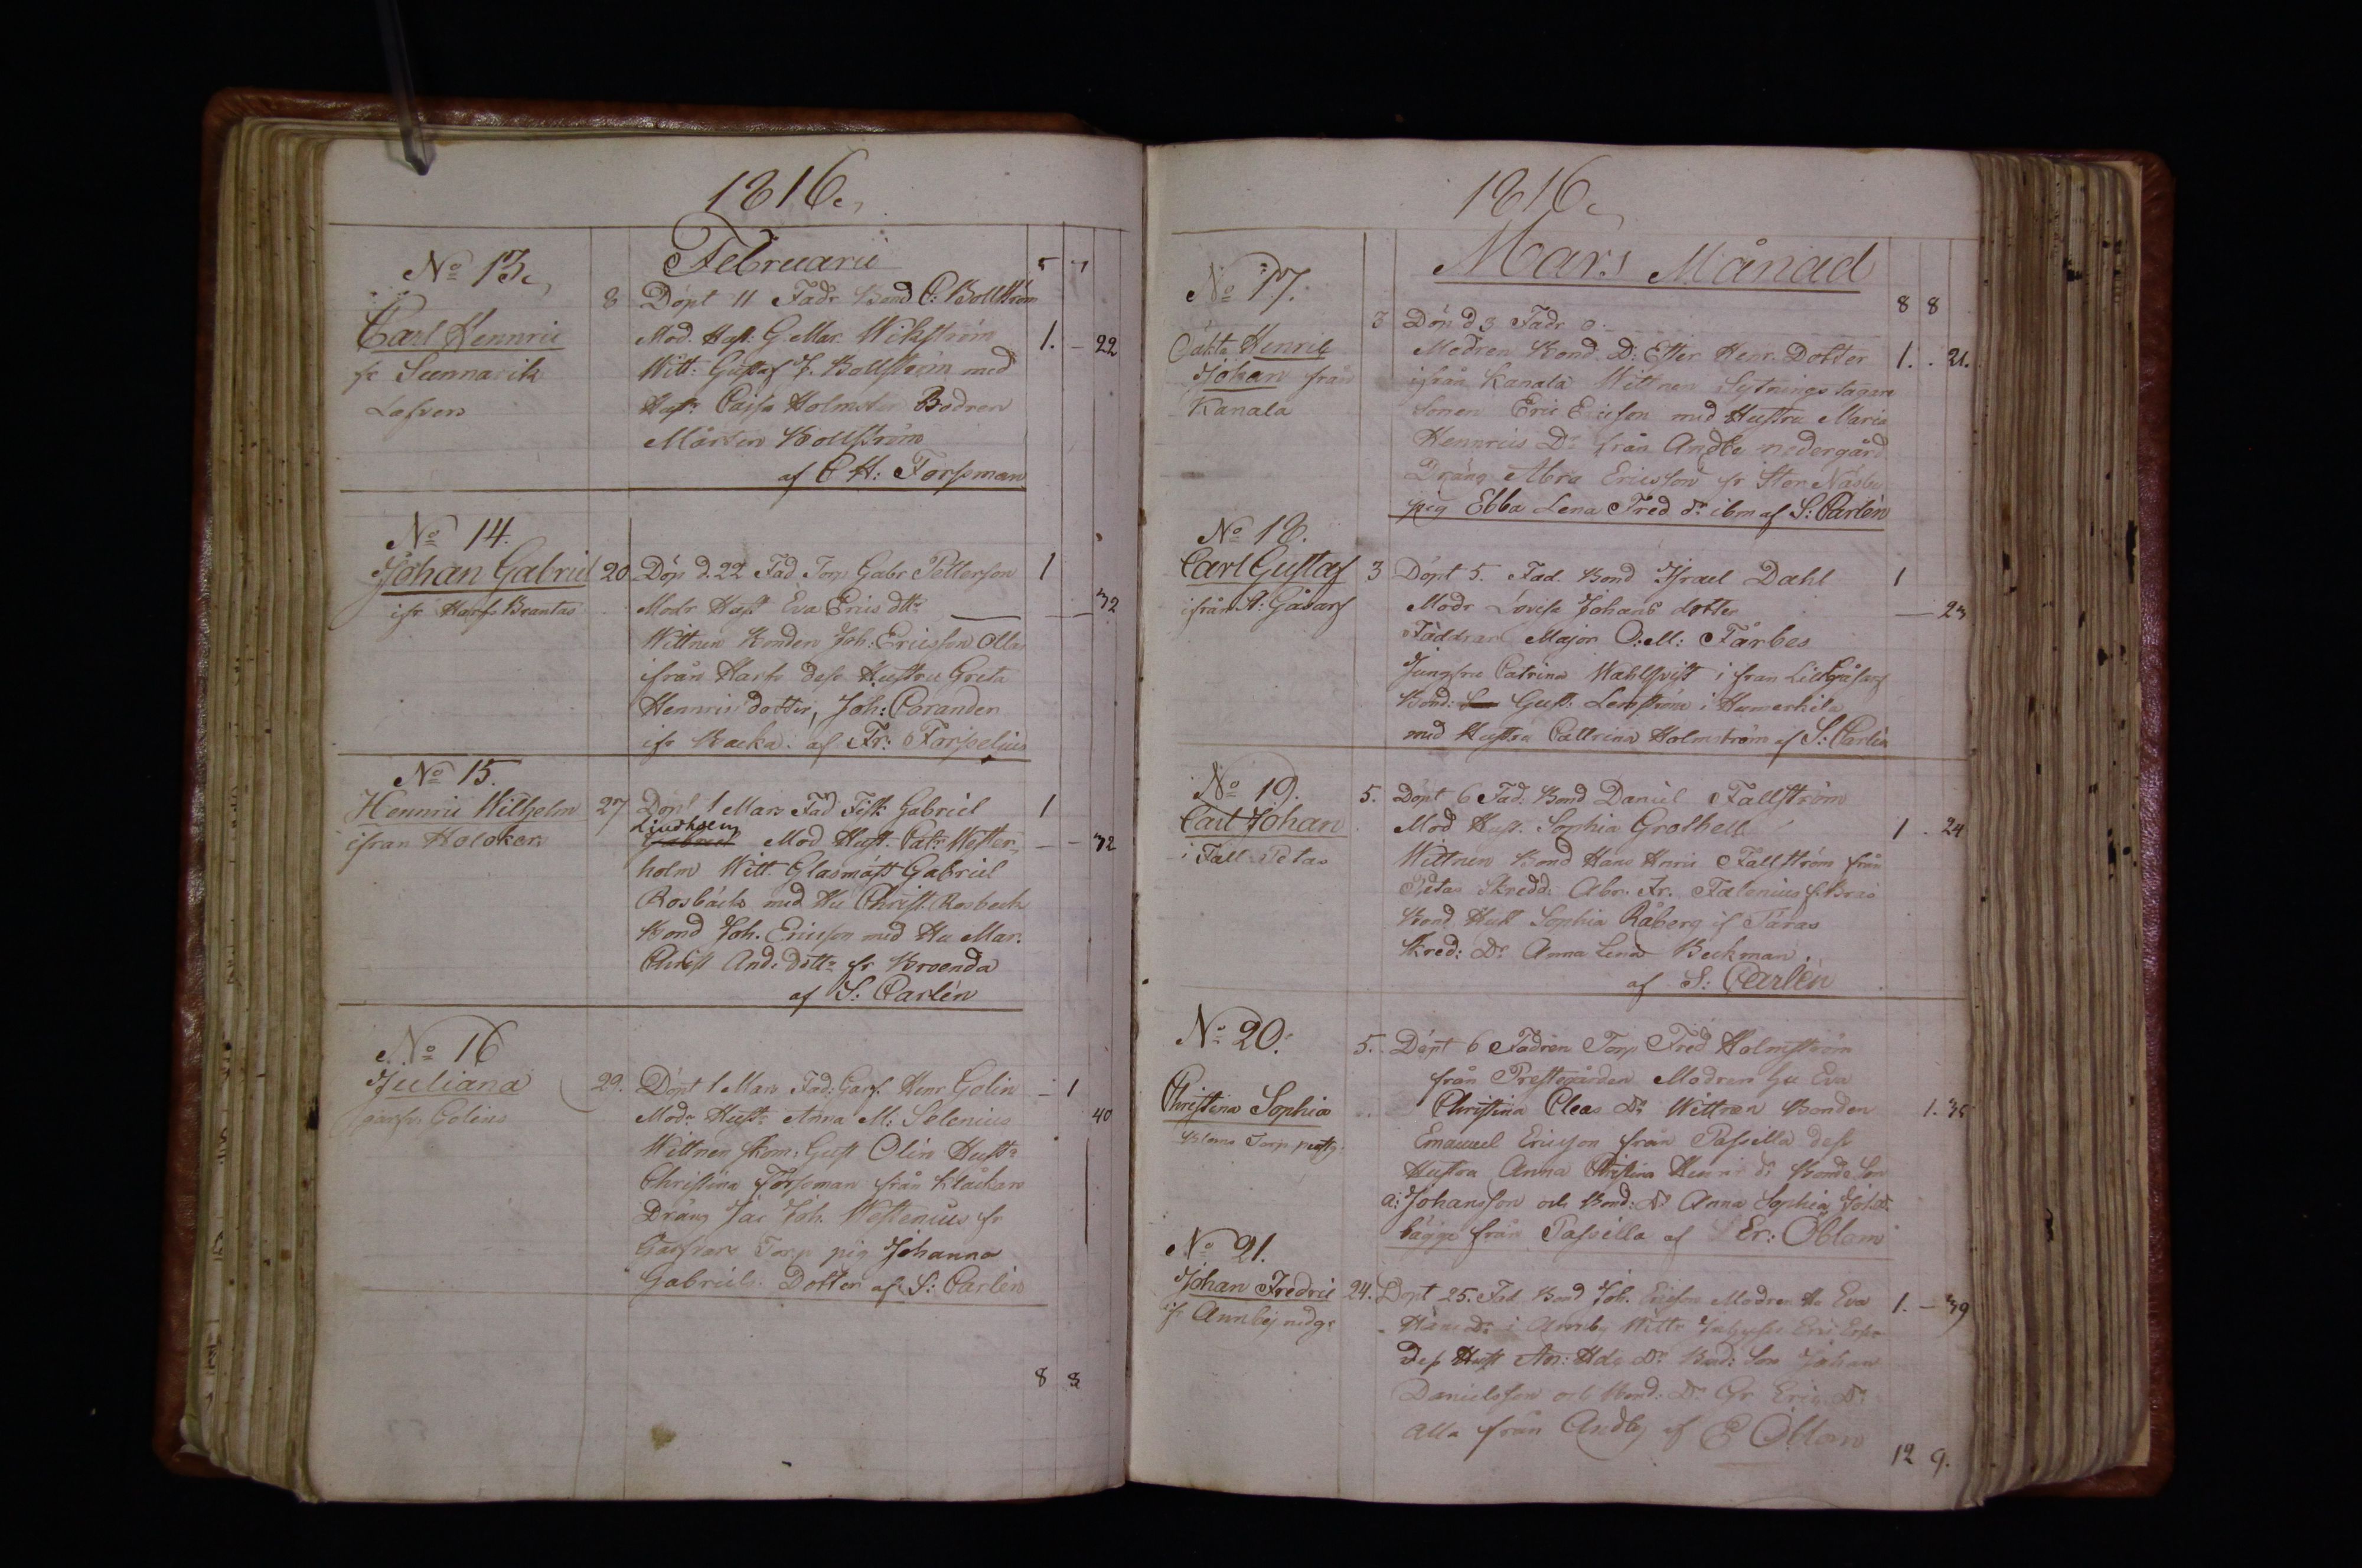 1816.
Februarii
5 7
No 13.
Carl Hennric
fr Sunnarik
Lassers
8 Döpt 11 Fadr Bond C: Bollström
Mod. Hust: G. Mar. Wikström 1. – 22
Witt: Gustaf J. Bollström med
Hustr Cajsa Holmster Bodren
Mårten Bollström
af C H: Forssman
No 14.
Johan Gabriel
ifr Harf Brantas
20 Döp d. 22 Fad Torp Gabr Petterson 1
Modr Hust Eva Erics dtr 32
Wittnen Bonden Joh: Ericsson Ollas
ifrån Harf dess Hustru Greta
Hennrics dotter, Joh: Carander
ifr Backa. af Fr: Forsselius
No 15.
Hennric Wilhelm
ifran Holoker
27 Döpt 1 Mars Fad Fisk Gabriel 1
Lindholm
Gabriel Mod Hust. Catr Wester= – – 32
holm Witt. Glasmäst Gabriel
Rosbäck med Hu Christ. Rosbeck
Bond Joh. Ericsson med Hu Mar.
Christ And: Dottr fr Broenda
af S: Carlén
No 16
Juliana
garfv. Golins
29. Döpt 1 Mars Fad: Garf. Henr Golin – 1
Modr Hustr Anna M: Selenius 40
Wittnen Skom: Gust Olin Hustr
Christina Forssman från Klåckars
Dräng Jac Joh. Westenius fr
Torp pig Johanna
Gabriels Dotter af S: Carlén
8 8
1816.
Mars Månad
8 8
No 17.
Oäkta Henric
Johan från
Kanala
3 Döp d 3 Fadr o.
Modren Bond. D: Etter Henr. Dotter 1. . 21.
ifrån Kanala Wittnen Sytningstagare
Sonen Eric Ericson med Hustru Maria
Hennrics Dr från Andbe nedergård
Dräng Abra Ericsson fr Stor Näsbe
pig Ebba Lena Fred dr ibm af S: Carlén
No 18.
Carl Gustaf
ifrån A: Gåsarf
3 Döpt 5. Fad. Bond Israel Dahl 1
Modr Lovisa Johans dotter — 23
Faddrar Major O: M: Färbes
Jungfru Catrina Wahlqvist i fran Lill Gåsarf
Bond: Gust. Lenström i Humerkila
med Hustru Cattrina Holmström af S: Carlén
No 19.
Carl Johan
i Fall Petas
5. Döpt 6 Fad: Bond Daniel Fallström
Mod Hust. Sophia Grothell 1 . 24
Wittnen Bond Hans Henric Fallström från
Petas Skredd. Abr. Fr. Falenius
Bond Hust Sophia Råberg if Täras
Skred: Dr Anna Lena Beckman.
af S: Carlén
No 20.
Christina Sophia
Bloms Torp prestg.
5. Döpt 6 Fadren Torp Fred Holmström
från Prestegården Modren hu Eva
Christina Cleas Dr Wittnen Bonden 1. 35
Emanuel Ericsson från Passilla dess
Hustru Anna Christina Henric dr Bonde Son
a: Johansson och Bond: Dr Anna Sophia Joh Dr
bägge från Passilla af Er: Öblom
No 21.
Johan Fredric
ifr Annby nedg.
24. Döpt 25. Fad Bond Joh. Ericsson Modren Hu Eva 1. – 39
Hans Dr i Annby Wittn Eric
Dess Hust An: Dr Bond: Son Johan
Danielsson och Bond: Dr Gr Eric Dr
alla från Andby af E Öblom
12 9.